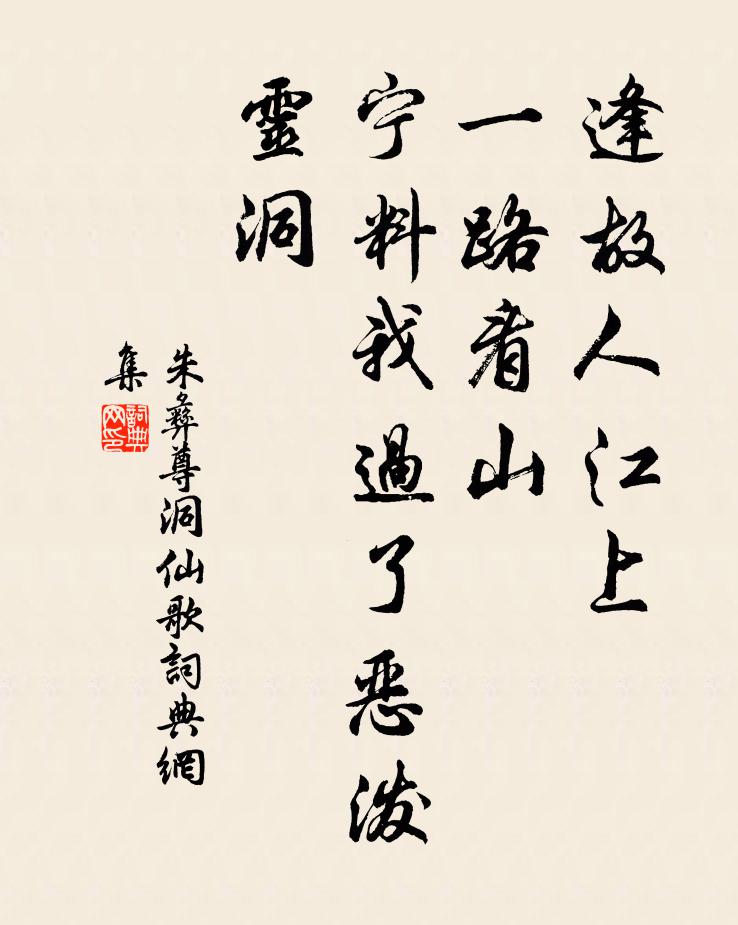 逢故人江上
一路看山
宁料我過了惡溪
靈洞
朱彝尊洞仙歌詞典網
集
詞典
网印